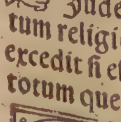 Jude
tum religi
excedit si es
totum que